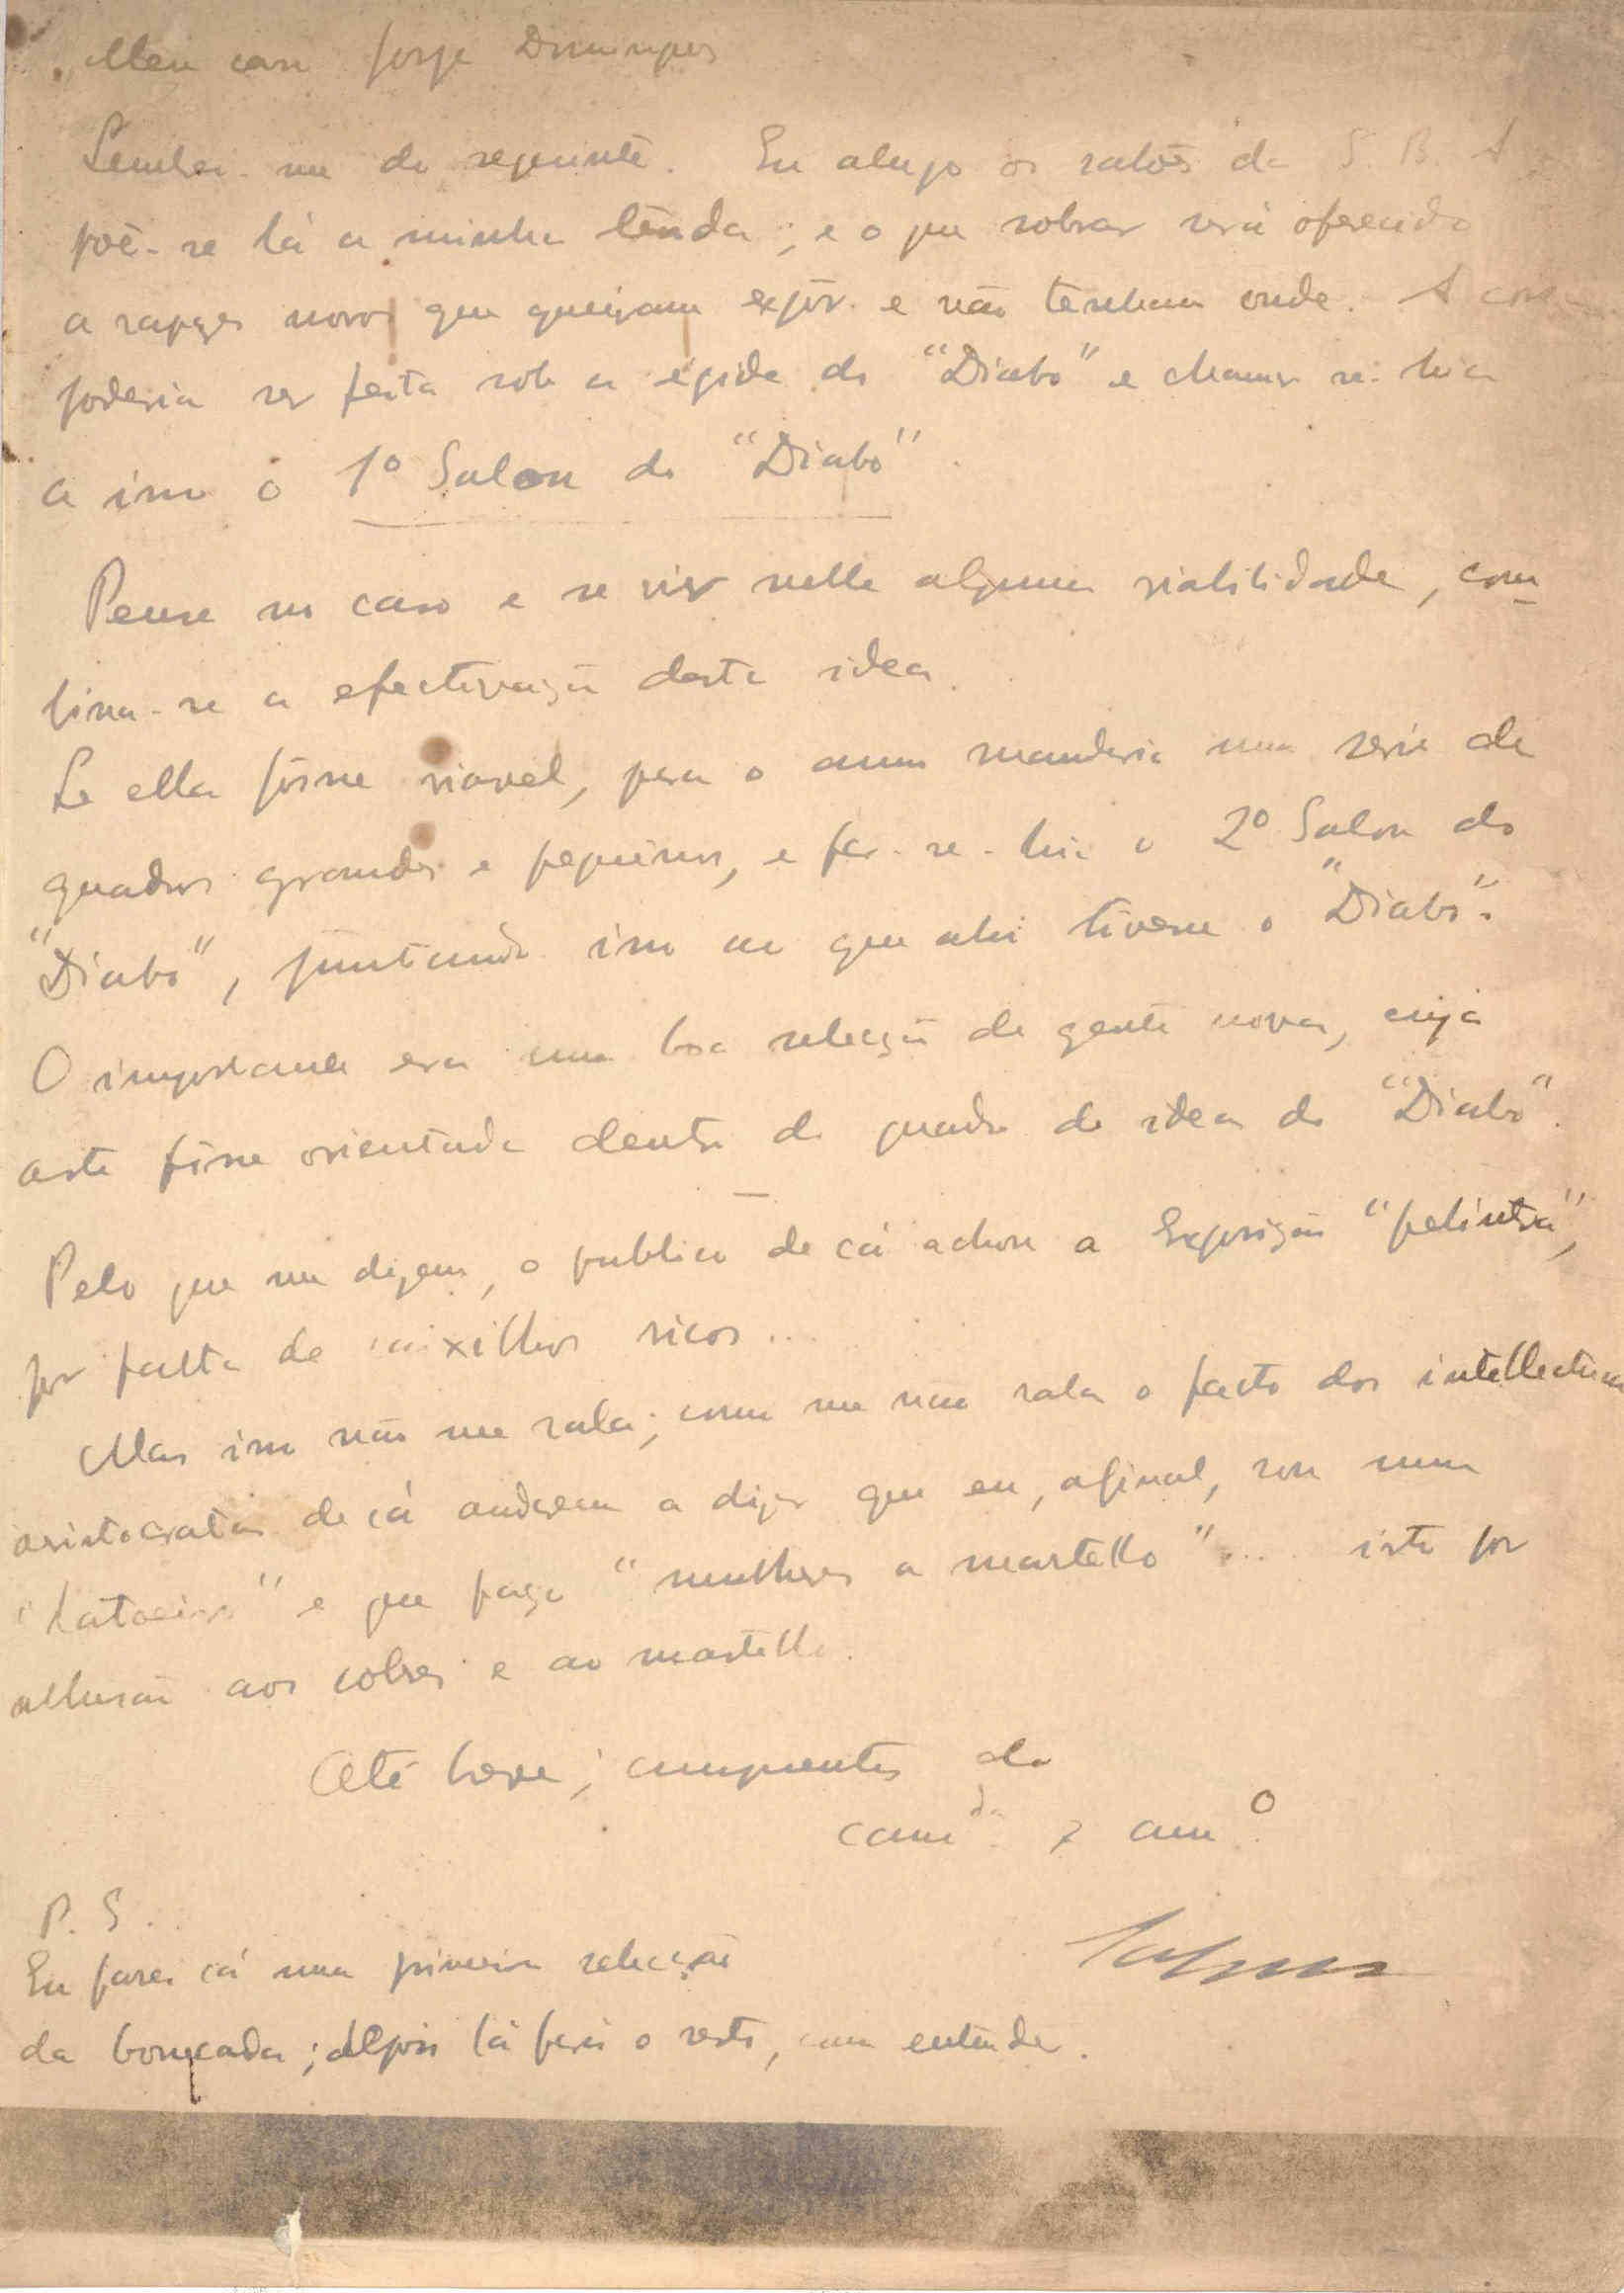 Meu caro Jorge Domingues
Lembrei-me do seguinte. Eu alugo os salões da S. B. A.
põe-se lá a minha tenda; e o que sobrar será oferecido
a rapazes novos que queiram expôr e não tenham onde. A coisa
poderia ser feita sob a égide do "Diabo" e chamar-se-hia
a isso o 1º Salon do "Diabo".
Pense no caso e se vir nelle alguma viabilidade, com-
bina-se a efectivação desta idea.
Se ella fôsse viavel, para o anno mandaria uma serie de
quadros grandes e pequenos, e far-se-hia o 2º Salon do
"Diabo", juntando isso ao que ahi tivesse o "Diabo".
O importante era uma boa selecção de gente nova, cuja
arte fosse orientada dentro do quadro de ideas do "Diabo".
Pelo que me dizem, o publico de cá achou a Exposição "pelintra",
por falta de caixilhos ricos...
Mas isso não me rala; como me não rala o facto dos intellectuaes
aristocratas de cá andarem a dizer que eu, afinal, sou um
"latoeiro" e que faço "mulheres a martello"... isto por
allusão aos cobres e ao martello.
Até breve; cumprimentos do
camda e amº
P. S.
Eu farei cá uma primeira selecção
da bonecada; depois lá fará o resto, como entender.